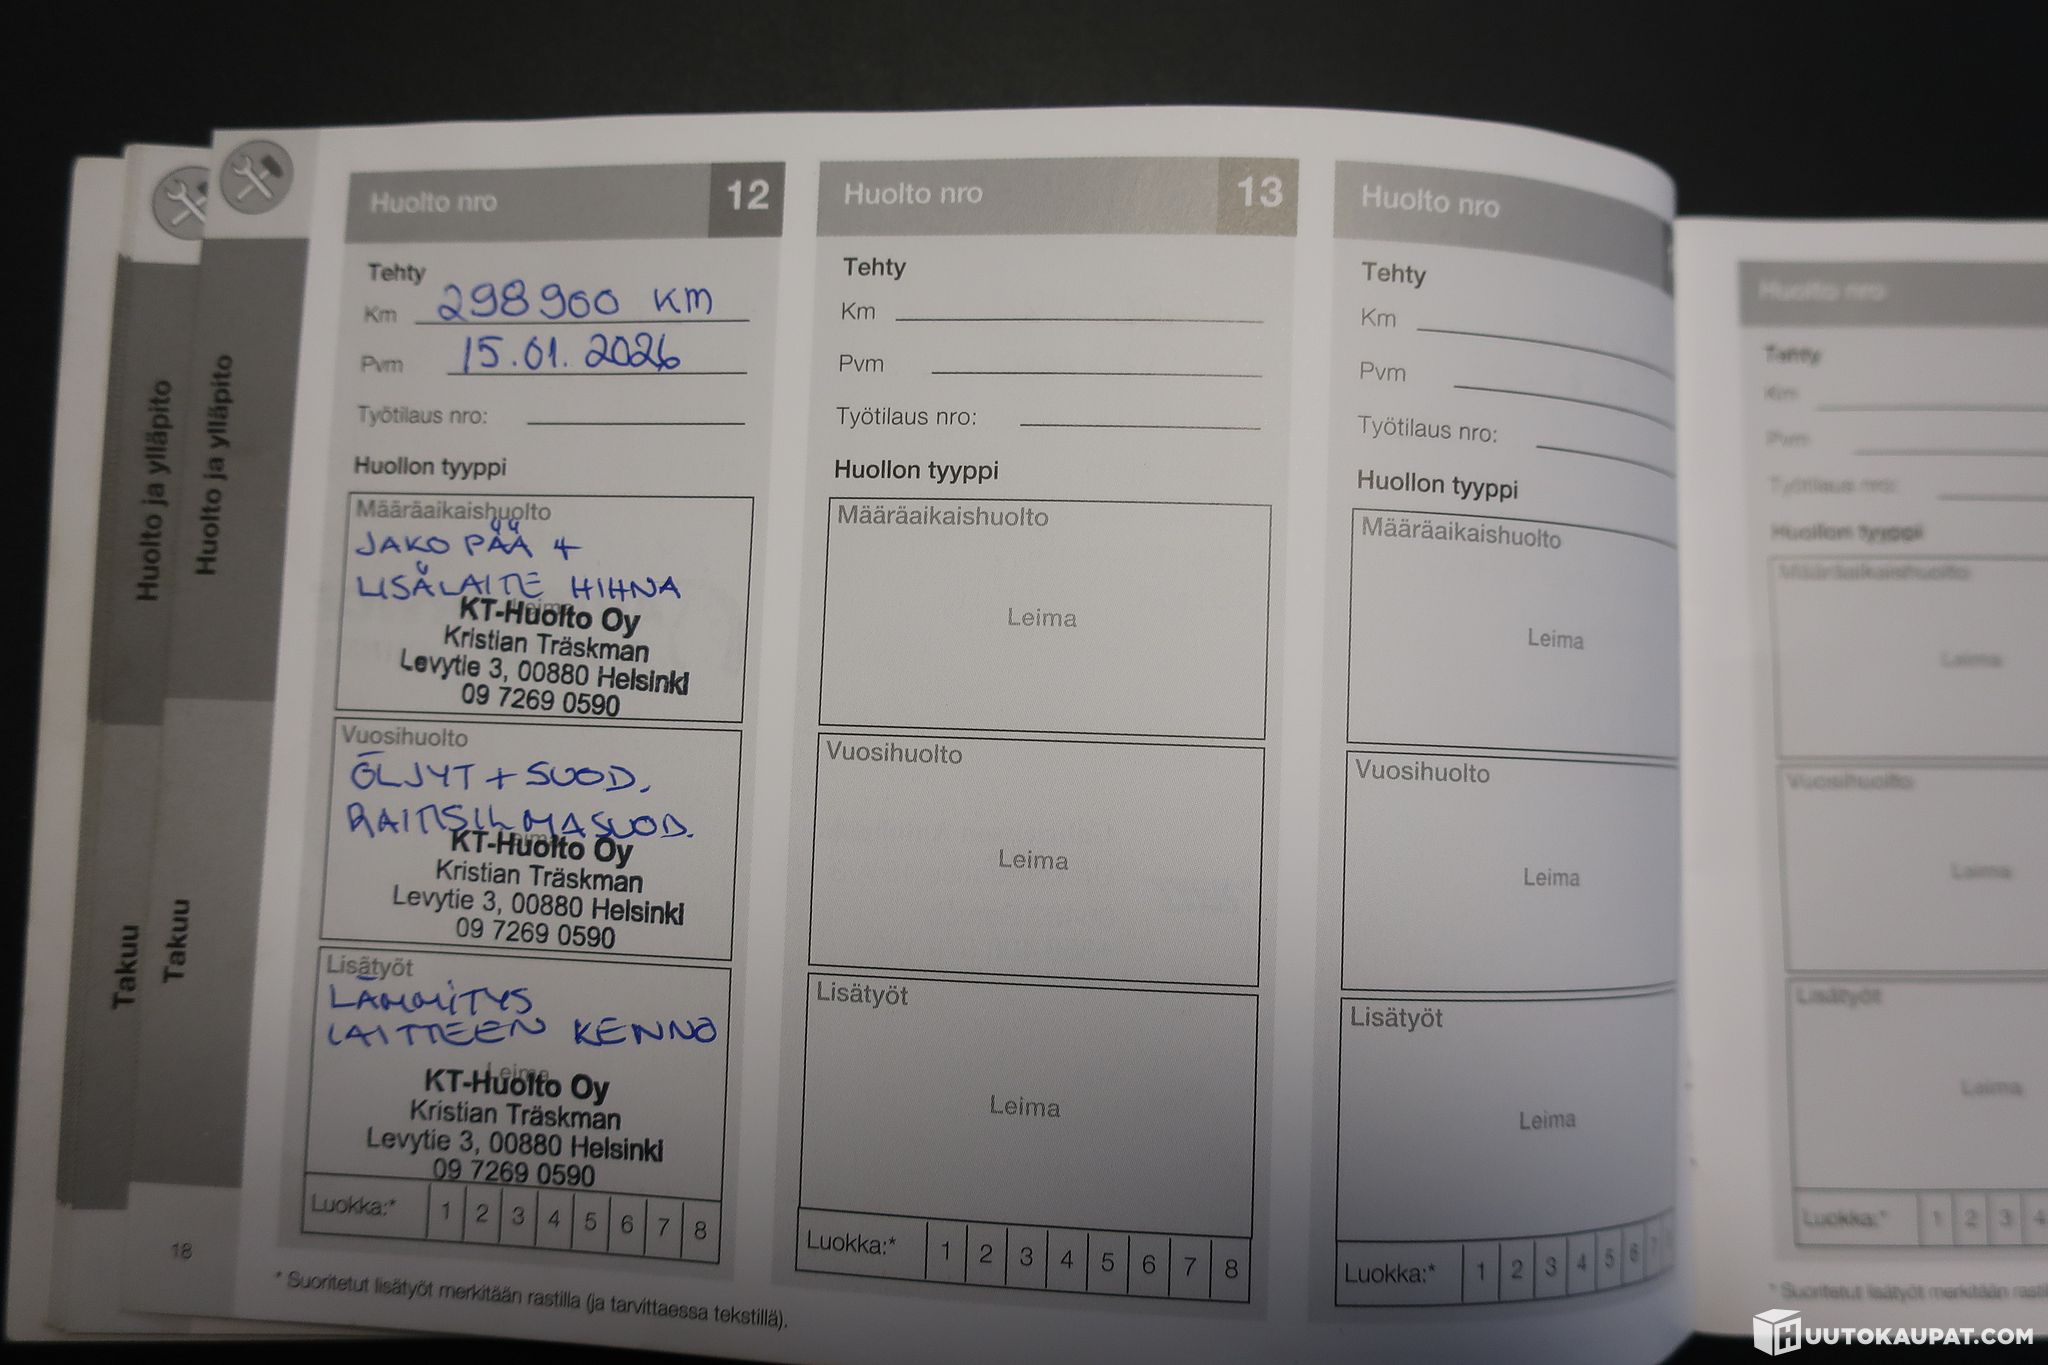 Huolto ja ylläpito
Takuu
Huolto ja ylläpito
Takuu
18
Huolto nro 12
Tehty
Km 298 900 KM
Pvm 15.01.2026
Työtilaus nro:
Huollon tyyppi
Määräaikaishuolto
JAKO PÄÄ +
LISÄLAITE HIHNA
Leima
KT-Huolto Oy
Kristian Träskman
Levytie 3, 00880 Helsinki
09 7269 0590
Vuosihuolto
ÖLJYT + SUOD.
RAITISILMASUOD.
Leima
KT-Huolto Oy
Kristian Träskman
Levytie 3, 00880 Helsinki
09 7269 0590
Lisätyöt
LÄMMITYS
LAITTEEN KENNO
Leima
KT-Huolto Oy
Kristian Träskman
Levytie 3, 00880 Helsinki
09 7269 0590
Luokka:* 1 2 3 4 5 6 7 8
* Suoritetut lisätyöt merkitään rastilla (ja tarvittaessa tekstillä).
Huolto nro 13
Tehty
Km
Pvm
Työtilaus nro:
Huollon tyyppi
Määräaikaishuolto
Leima
Vuosihuolto
Leima
Lisätyöt
Leima
Luokka:* 1 2 3 4 5 6 7 8
Huolto nro
Tehty
Km
Pvm
Työtilaus nro:
Huollon tyyppi
Määräaikaishuolto
Leima
Vuosihuolto
Leima
Lisätyöt
Leima
Luokka:* 1 2 3 4 5 6 7
Huolto nro
Tehty
Km
Pvm
Työtilaus nro:
Huollon tyyppi
Määräaikaishuolto
Leima
Vuosihuolto
Leima
Lisätyöt
Leima
Luokka:* 1 2 3 4
* Suoritetut lisätyöt merkitään
HUUTOKAUPAT.COM